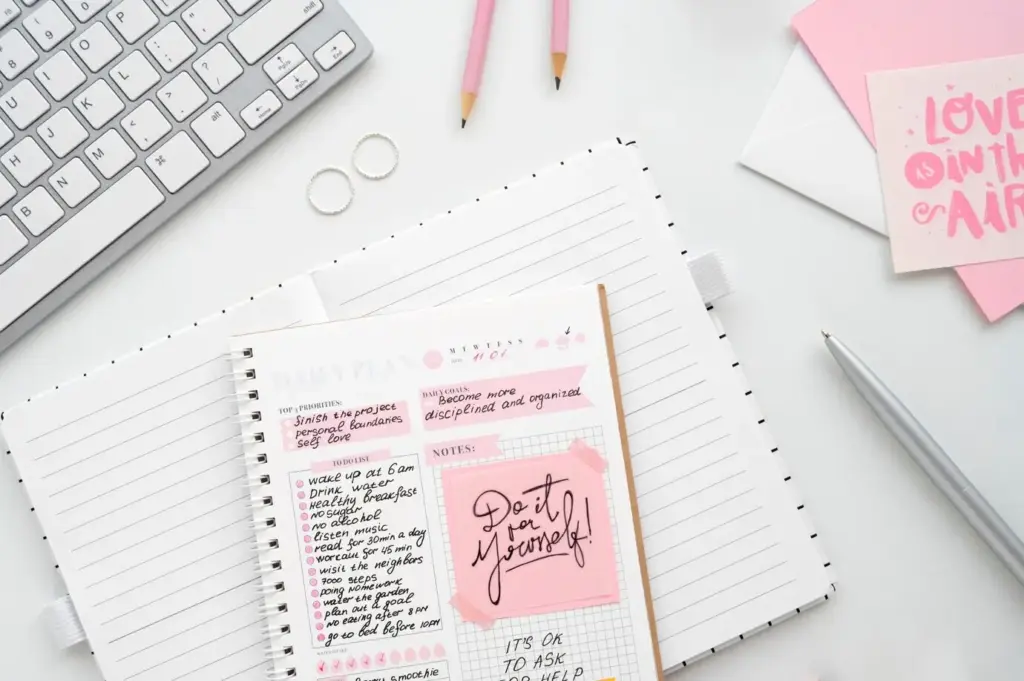 9
8
O
P
:
;
shift
I
L
?
/
U
K
>
.
J
<
,
alt
H
M
⌘
N
B
LOVE
IS IN TH
AIR
DAILY PLAN
M T W T F S S
TOP 3 PRIORITIES:
finish the project
personal boundaries
self love
DAILY GOALS:
Become more
disciplined and organized
TO DO LIST
wake up at 6 am
Drink water
Healthy breakfast
No sugar
no alcohol
listen music
read for 30 min a day
workout for 45 min
wisit the neighbors
7000 steps
doing homework
water the garden
plan out a goal
no eating after 8 PM
go to bed before 10PM
NOTES:
Do it
for
yourself!
IT'S OK
TO ASK
FOR HELP
smoothie